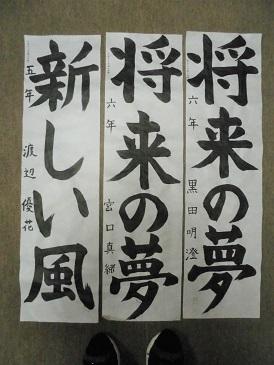 将来の夢
六年 黒田明澄
将来の夢
六年 宮口真緒
新しい風
五年 渡辺優花